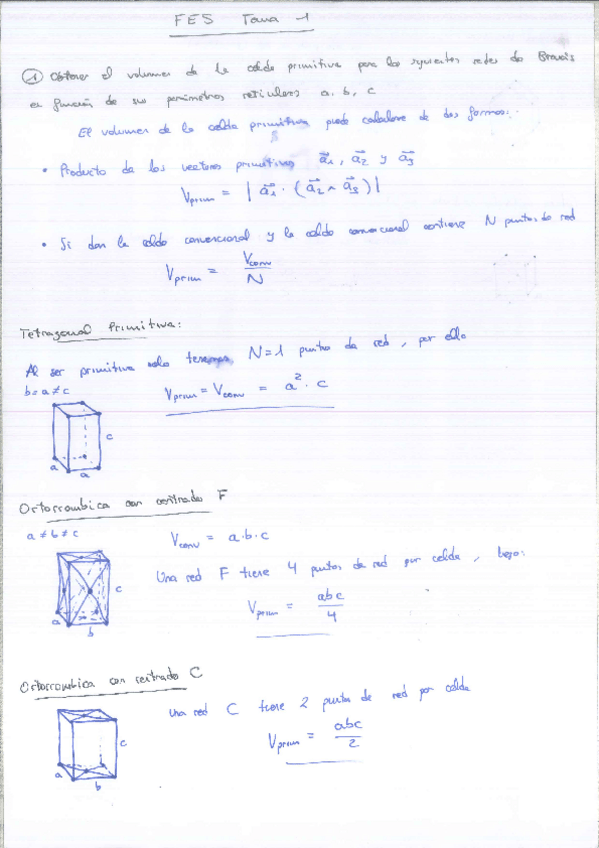 FES Tema 1
① Obtener el volumen de la celda primitiva para las siguientes redes de Bravais
en función de sus parámetros reticulares a, b, c
El volumen de la celda primitiva puede calcularse de dos formas:
• Producto de los vectores primitivos a⃗₁, a⃗₂ y a⃗₃
Vprim = | a⃗₁ · (a⃗₂ ∧ a⃗₃) |
• Si dan la celda convencional y la celda convencional contiene N puntos de red
Vprim = Vconv / N
Tetragonal Primitiva:
Al ser primitiva solo tenemos N=1 puntos de red, por ello
b = a ≠ c
Vprim = Vconv = a² · c
c
a
a
Ortorrombica con centrado F
a ≠ b ≠ c
Vconv = a·b·c
Una red F tiene 4 puntos de red por celda, luego:
Vprim = abc / 4
c
a
b
Ortorrombica con centrado C
Una red C tiene 2 puntos de red por celda
Vprim = abc / 2
c
a
b